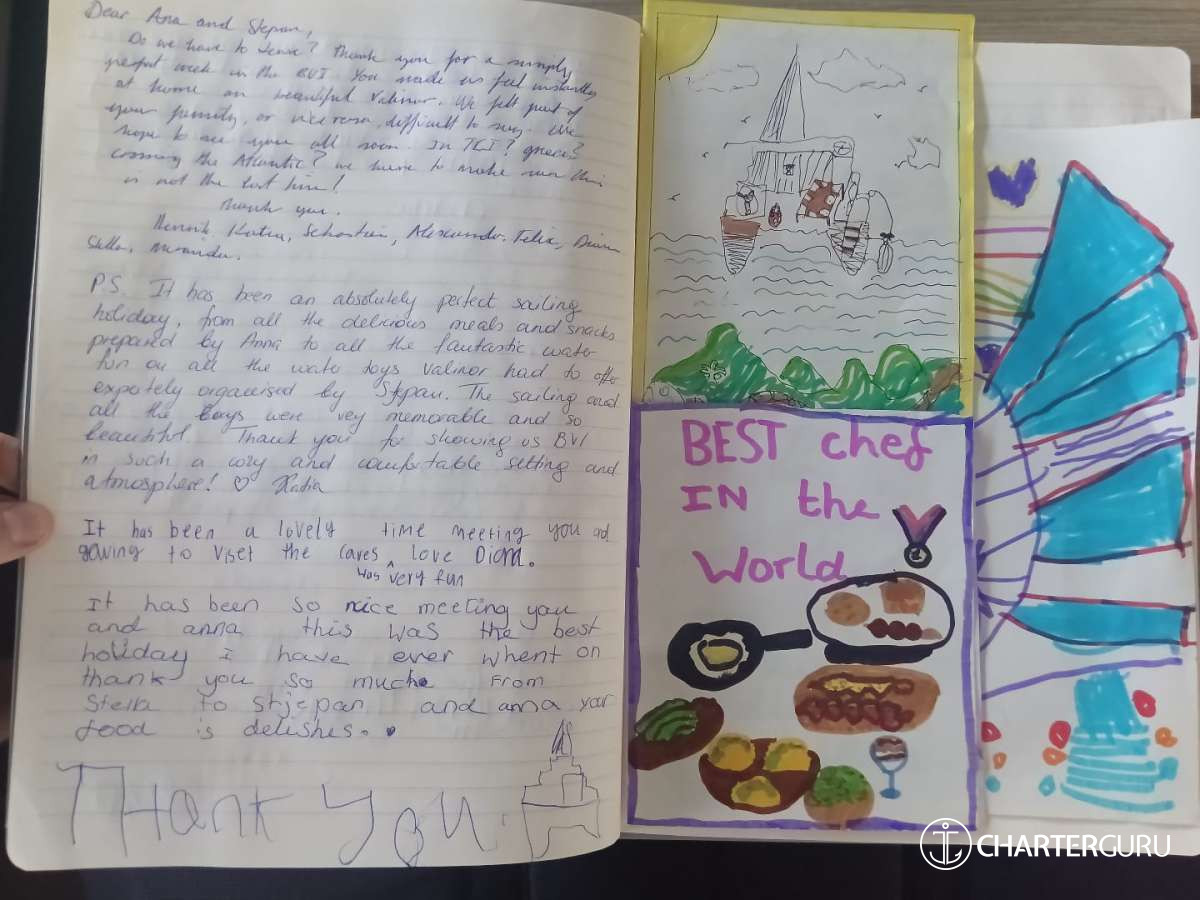 Dear Ana and Stepan,
Do we have to leave? Thank you for a simply
perfect week in the BVI. You made us feel instantly
at home on beautiful Valinor. We felt part of
your family, or vice versa, difficult to say. We
hope to see you all soon. In TCI? Greece?
crossing the Atlantic? We have to make sure this
is not the last time!
Thank you.
Henrik, Katia, Sebastian, Alexander, Felix, Diana
Stella,
PS. It has been an absolutely perfect sailing
holiday, from all the delicious meals and snacks
prepared by Anna to all the fantastic water
fun on all the water toys Valinor had to offer
expertely organised by Stjepan. The sailing and
all the bays were very memorable and so
beautiful. Thank you for showing us BVI
in such a cozy and comfortable setting and
atmosphere! ♡ Katia
It has been a lovely time meeting you and
gowing to viset the caves love Diana.
was very fun
It has been so nice meeting you
and anna this was the best
holiday I have ever whent on
thank you so much from
Stella to stjepan and anna your
food is delishes.
Thank You
BEST chef
IN the
World
1
CHARTERGURU